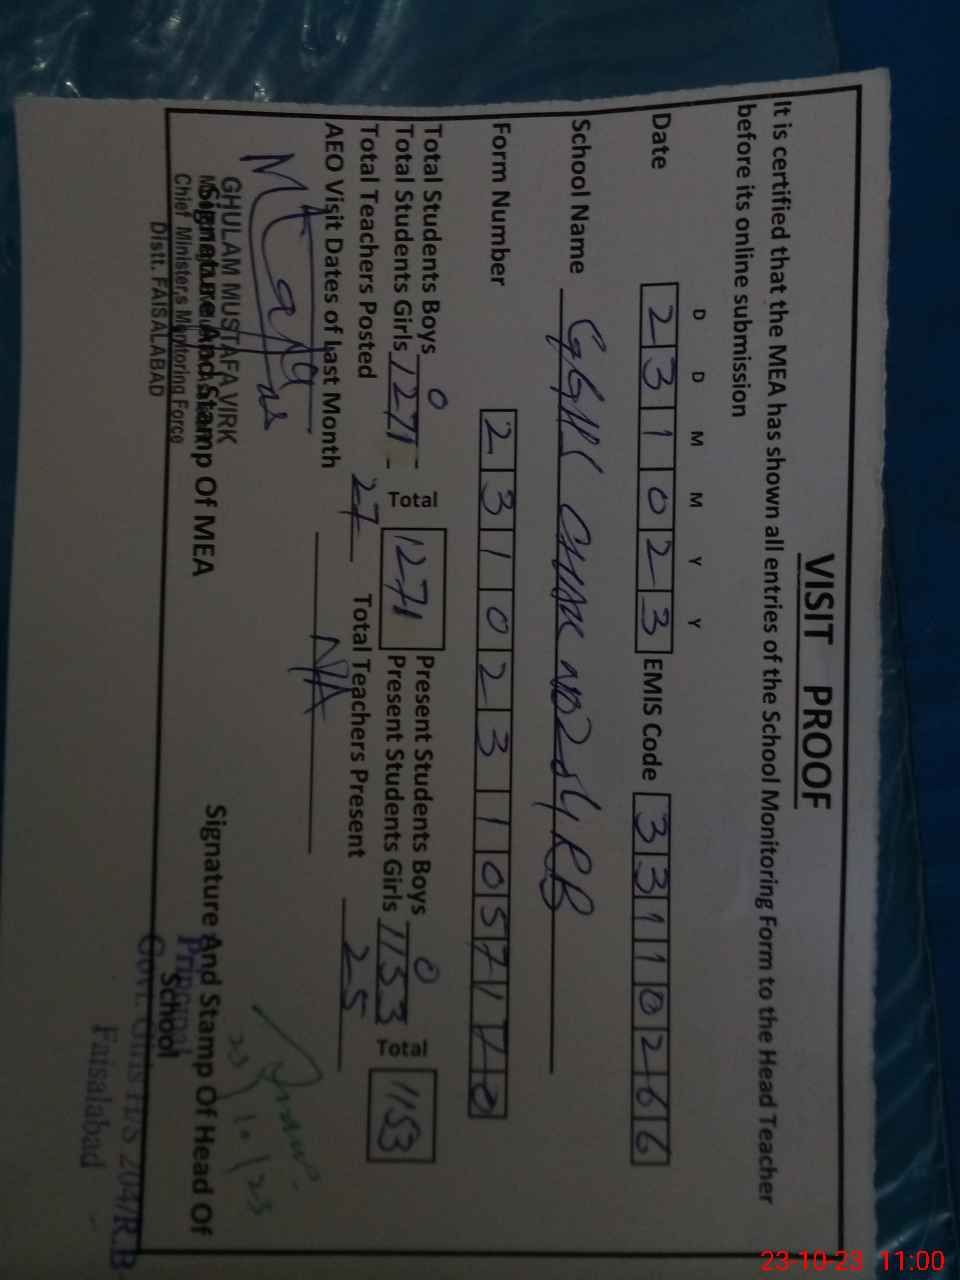 VISIT PROOF
It is certified that the MEA has shown all entries of the School Monitoring Form to the Head Teacher
before its online submission
D D M M Y Y
Date 2 3 1 0 2 3 EMIS Code 3 3 1 1 0 2 6 6
School Name GGHS CHAK NO 204 RB
Form Number 2 3 1 0 2 3 1 0 5 7 1 7
Total Students Boys 0 Present Students Boys 0
Total Students Girls 1271 Total 1271 Present Students Girls 1153 Total 1153
Total Teachers Posted 27 Total Teachers Present 25
AEO Visit Dates of Last Month N/A
GHULAM MUSTAFA VIRK
Signature And Stamp Of MEA
Chief Minister,s Monitoring Force
Distt. FAISALABAD
23/10/23
Signature And Stamp Of Head Of
School
Principal
Govt. Girls H/S 204/R.B
Faisalabad
23-10-23 11:00